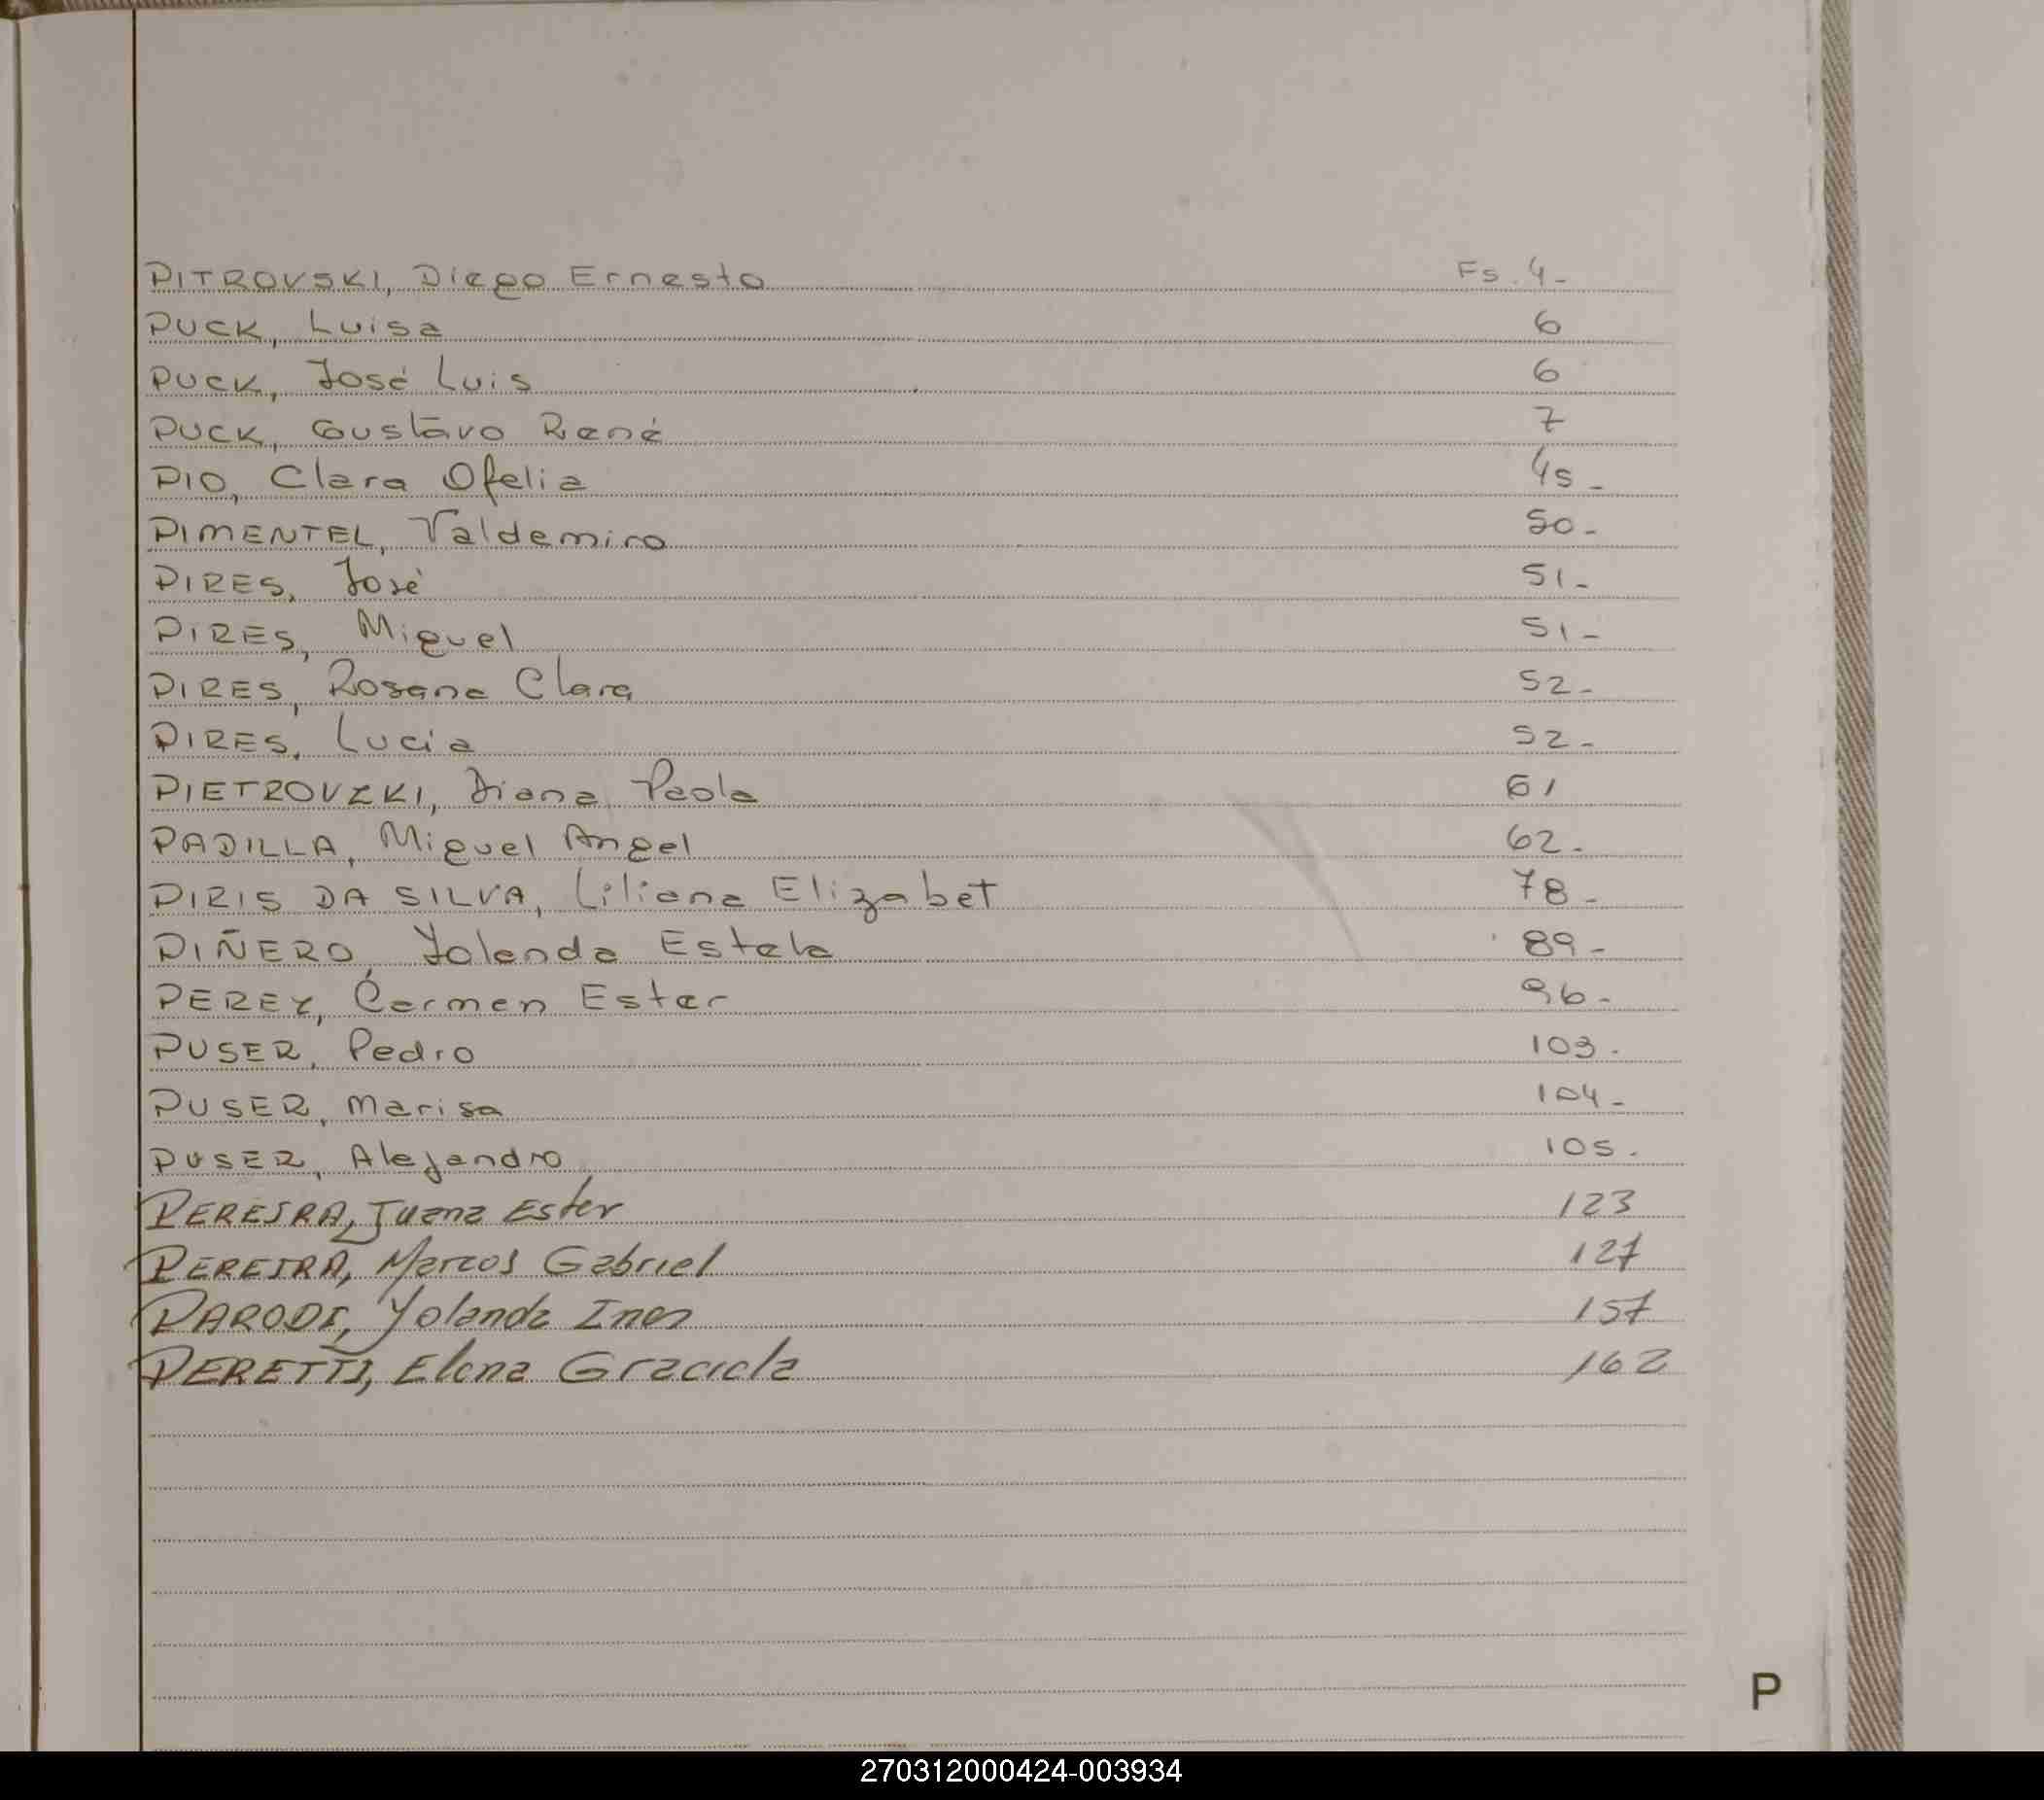 PITROVSKI, Diego Ernesto Fs. 4-
PUCK, Luisa 6
PUCK, José Luis 6
PUCK, Gustavo René 7
PIO, Clara Ofelia 45-
PIMENTEL, Valdemiro 50-
PIRES, José 51-
PIRES, Miguel 51-
PIRES, Rosana Clara 52-
PIRES, Lucia 52-
PIETROVZKI, Diana Paola 61
PADILLA, Miguel Angel 62-
PIRIS DA SILVA, Liliana Elizabet 78-
PIÑERO, Yolanda Estela 89-
PEREZ, Carmen Ester 96-
PUSER, Pedro 103-
PUSER, Marisa 104-
PUSER, Alejandro 105-
PEREIRA, Juana Ester 123
PEREIRA, Marcos Gabriel 127
PARODI, Yolanda Ines 157
PERETTI, Elena Graciela 162
P
270312000424-003934